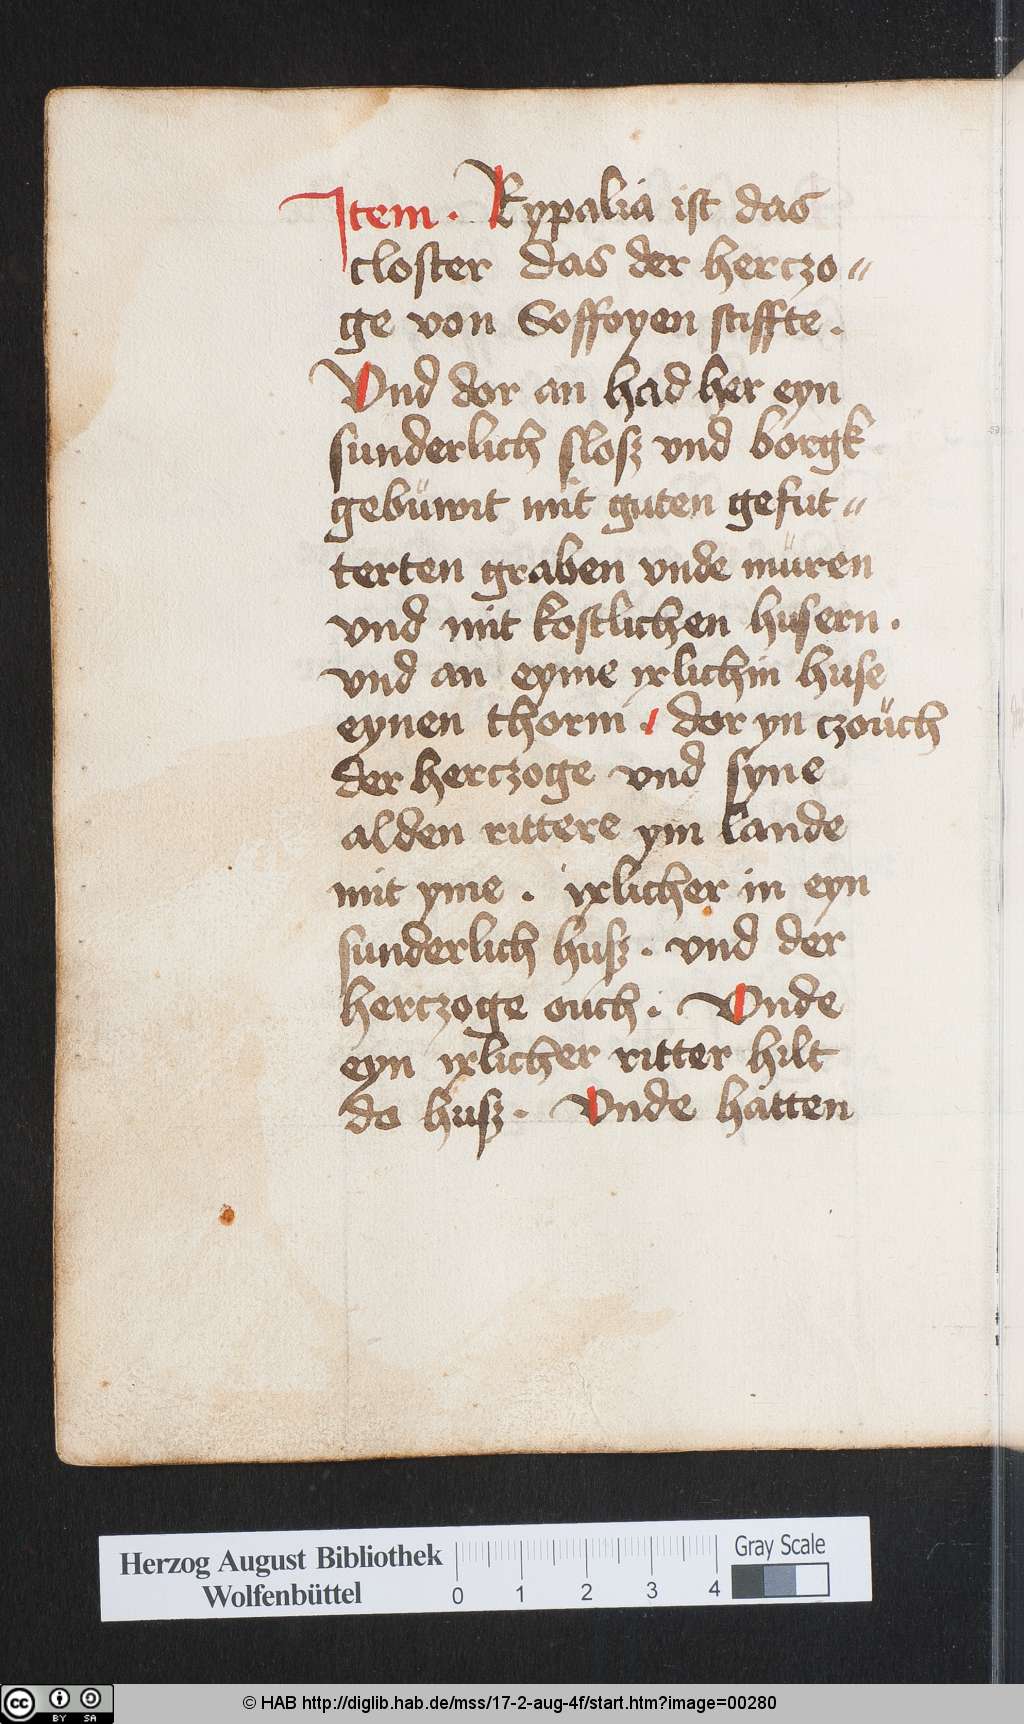 Item · Rypalia ist das
closter das der herczo〃
ge von Soffoyen stiffte ·
Vnd dor an had her eyn
sunderlich slosz vnd borgk
gebüwit mit guten gefut〃
terten graben vnde müren
vnd mit kostlichen husern ·
vnd an eyme ixlichin huse
eynen thorm · dor yn czoüch
der herczoge vnd syne
alden rittere ym lande
mit yme · ixlicher in eyn
sunderlich husz · vnd der
herczoge ouch · Vnde
eyn ixlicher ritter hilt
do husz · Vnde hatten
Herzog August Bibliothek
Wolfenbüttel
0 1 2 3 4
Gray Scale
cc BY SA
© HAB http://diglib.hab.de/mss/17-2-aug-4f/start.htm?image=00280